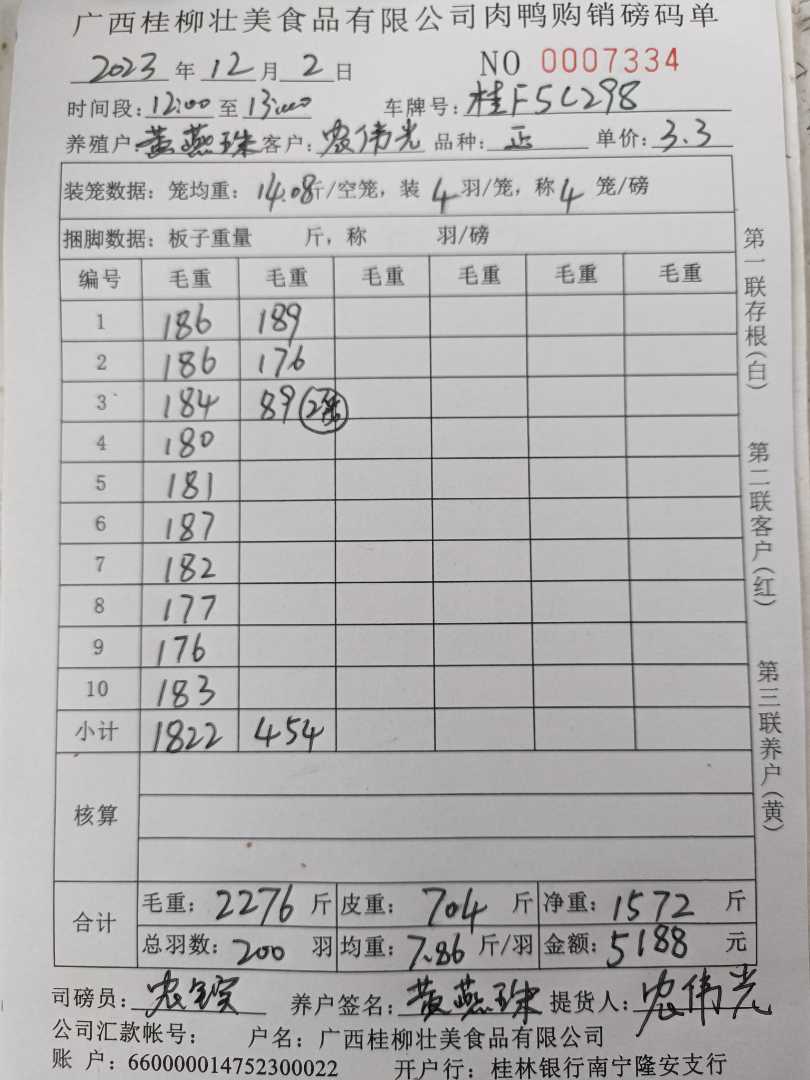 广西桂柳壮美食品有限公司肉鸭购销磅码单
2023 年 12 月 2 日 NO 0007334
时间段: 12:00 至 13:00 车牌号: 桂F5C298
养殖户: 黄燕珠 客户: 农伟光 品种: 正 单价: 3.3
装笼数据: 笼均重: 14.08 斤/空笼, 装 4 羽/笼, 称 4 笼/磅
捆脚数据: 板子重量 斤, 称 羽/磅
编号 毛重 毛重 毛重 毛重 毛重 毛重
1 186 189
2 186 176
3 184 89 2笼
4 180
5 181
6 187
7 182
8 177
9 176
10 183
小计 1822 454
核算
合计 毛重: 2276 斤 皮重: 704 斤 净重: 1572 斤
总羽数: 200 羽 均重: 7.86 斤/羽 金额: 5188 元
司磅员: 农 养户签名: 黄燕珠 提货人: 农伟光
公司汇款帐号: 户名: 广西桂柳壮美食品有限公司
账 户: 660000014752300022 开户行: 桂林银行南宁隆安支行
第一联存根(白)
第二联客户(红)
第三联养户(黄)